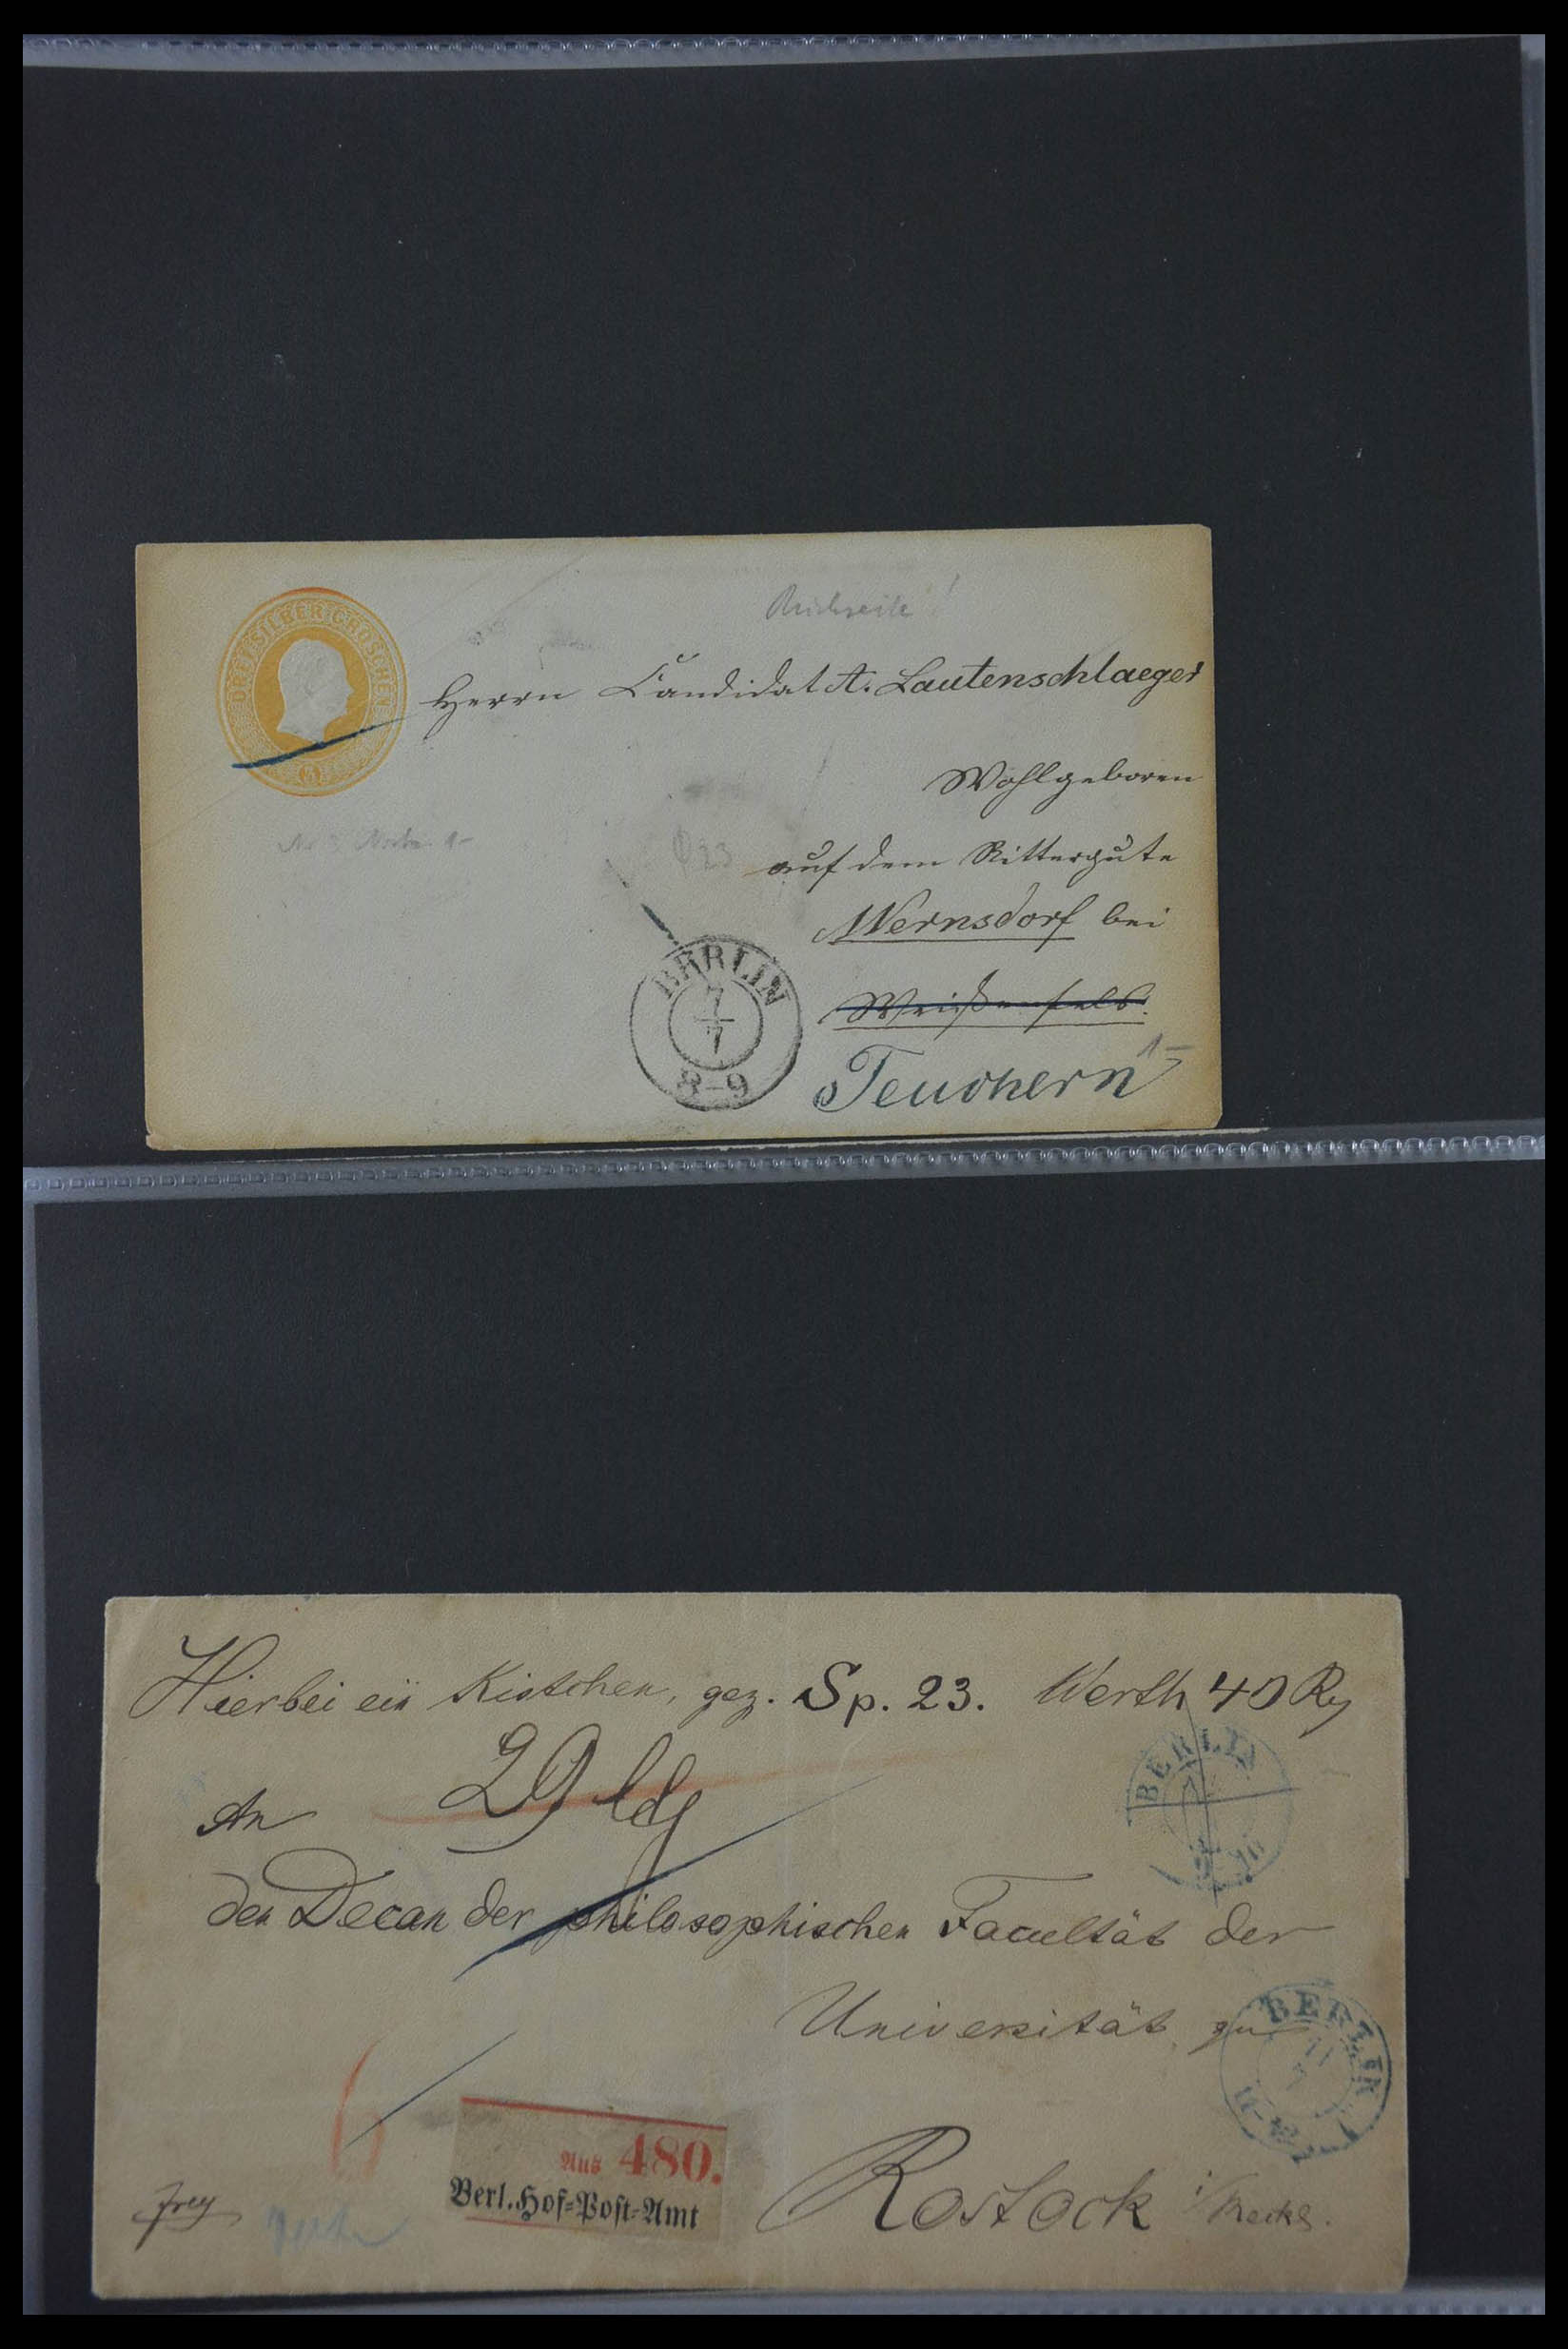 Rückseite!
DREI SILBERGROSCHEN
3
Herrn Candidat A. Lautenschlaeger
Wohlgeboren
auf dem Rittergute
Wernsdorf bei
Weißenfels.
Teuchern
BERLIN
7
7
8-9
Hierbei ein Kistchen, gez. Sp. 23. Werth 40 Rg
BERLIN
An
den Decan der philosophischen Facultät der
Universität zu
BERLIN
6
Aus 480.
Berl. Hof=Post=Amt
Rostock i/Meckl.
frey